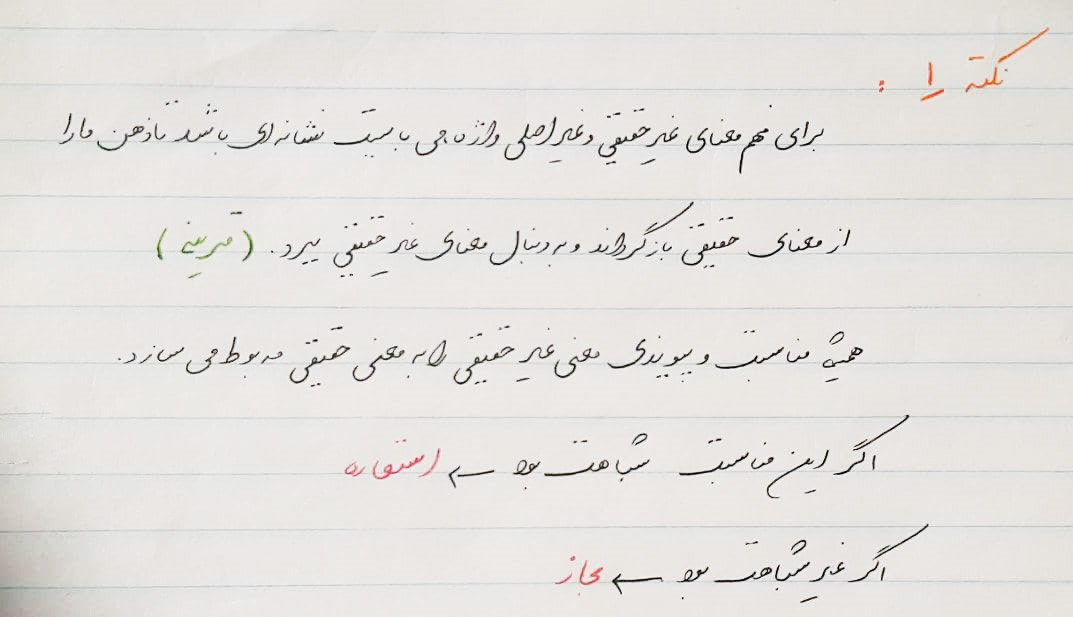 نکته ۱ :
برای فهم معنای غیر حقیقی و غیر اصلی واژه می بایست نشانه ای باشد تا ذهن ما را
از معنای حقیقی بازگرداند و به دنبال معنای غیر حقیقی ببرد. (قرینه)
همیشه مناسبت و پیوندی معنی غیر حقیقی را به معنی حقیقی مربوط می سازد.
اگر این مناسبت شباهت بود ← استعاره
اگر غیر شباهت بود ← مجاز